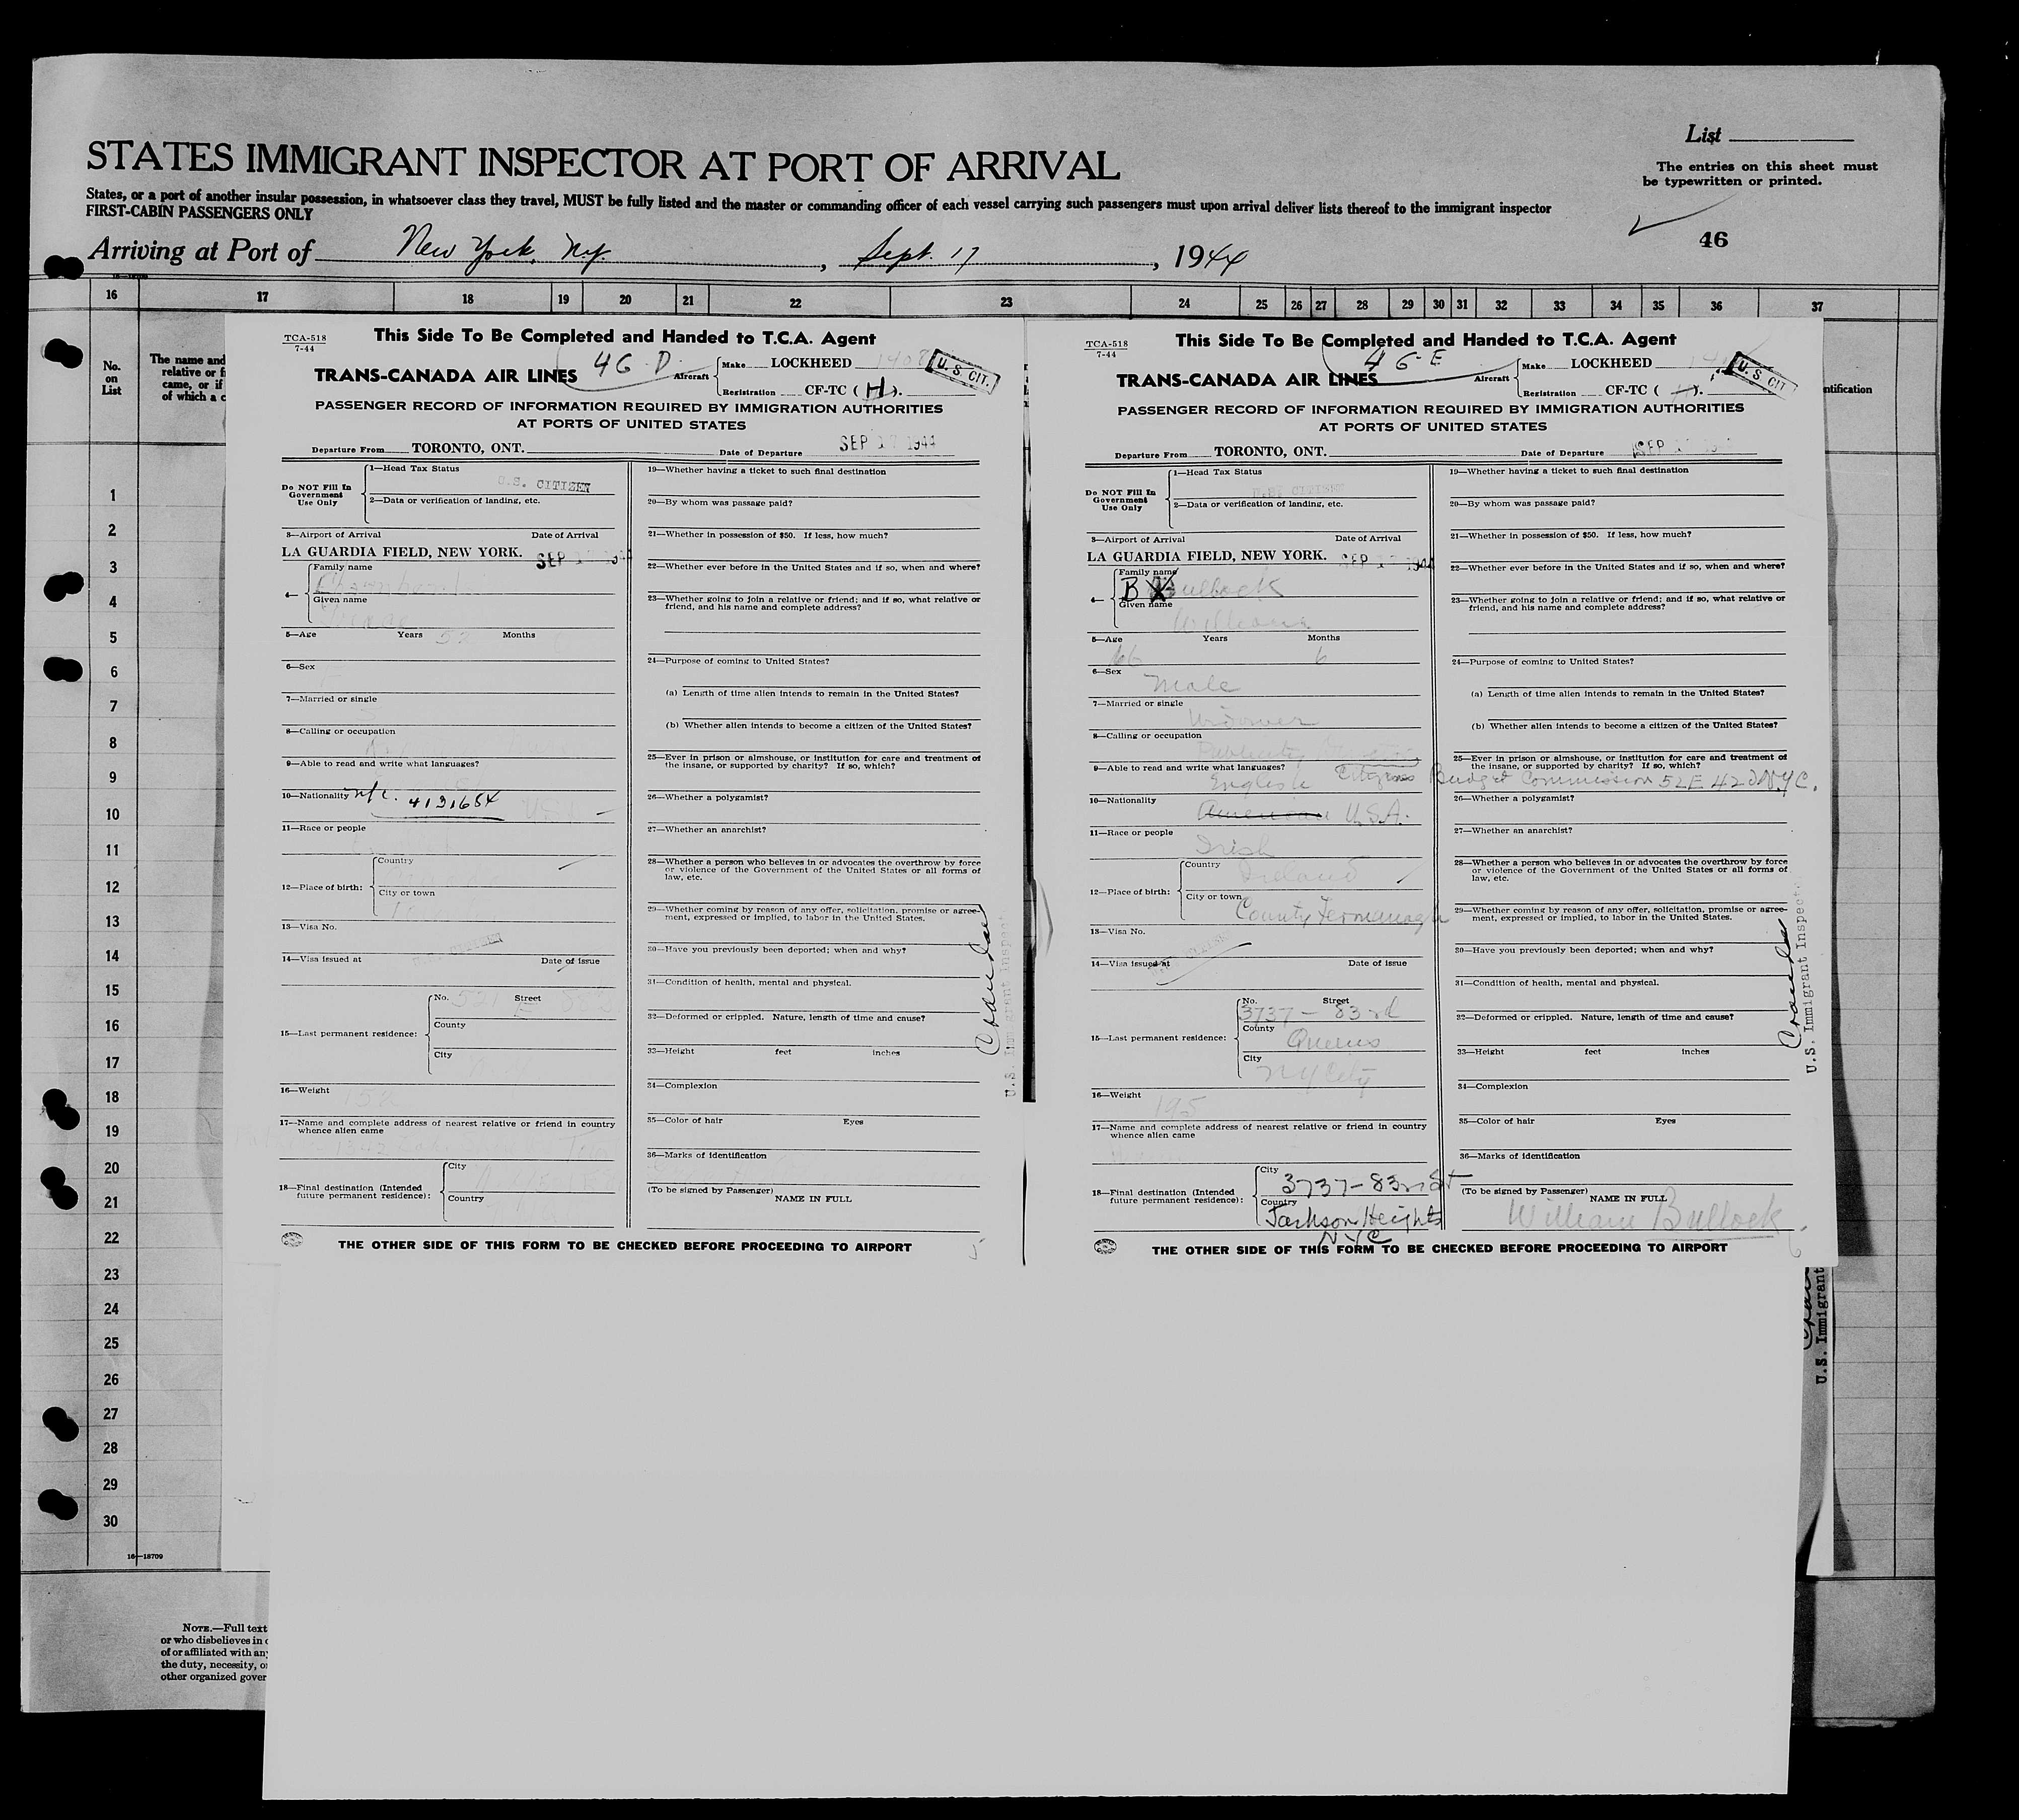 List
STATES IMMIGRANT INSPECTOR AT PORT OF ARRIVAL
The entries on this sheet must
be typewritten or printed.
States, or a port of another insular possession, in whatsoever class they travel, MUST be fully listed and the master or commanding officer of each vessel carrying such passengers must upon arrival deliver lists thereof to the immigrant inspector
FIRST-CABIN PASSENGERS ONLY
46
Arriving at Port of New York, N.Y. , Sept. 17 , 1944
16 17 18 19 20 21 22 23 24 25 26 27 28 29 30 31 32 33 34 35 36 37
No.
on
List
The name and
relative or f
came, or if
of which a c
ntification
1
2
3
4
5
6
7
8
9
10
11
12
13
14
15
16
17
18
19
20
21
22
23
24
25
26
27
28
29
30
16—18709
NOTE.—Full text
or who disbelieves in
of or affiliated with any
the duty, necessity, or
other organized gover
TCA-518
7-44
This Side To Be Completed and Handed to T.C.A. Agent
46 D
TRANS-CANADA AIR LINES
Aircraft
Make LOCKHEED
Registration CF-TC ( H ).
U. S. CIT.
PASSENGER RECORD OF INFORMATION REQUIRED BY IMMIGRATION AUTHORITIES
AT PORTS OF UNITED STATES
Departure From TORONTO, ONT. Date of Departure SEP 17 1944
Do NOT Fill In
Government
Use Only
1—Head Tax Status
U.S. CITIZEN
2—Data or verification of landing, etc.
3—Airport of Arrival Date of Arrival
LA GUARDIA FIELD, NEW YORK. SEP 17 1944
4—
Family name
Given name
5—Age Years 52 Months
6—Sex
7—Married or single
8—Calling or occupation
9—Able to read and write what languages?
10—Nationality n/c. 4131654 USA
11—Race or people
12—Place of birth:
Country
City or town
13—Visa No.
14—Visa issued at Date of issue
15—Last permanent residence:
No. 521 Street
County
City
16—Weight
17—Name and complete address of nearest relative or friend in country
whence alien came
18—Final destination (Intended
future permanent residence):
City
Country
19—Whether having a ticket to such final destination
20—By whom was passage paid?
21—Whether in possession of $50. If less, how much?
22—Whether ever before in the United States and if so, when and where?
23—Whether going to join a relative or friend; and if so, what relative or
friend, and his name and complete address?
24—Purpose of coming to United States?
(a) Length of time alien intends to remain in the United States?
(b) Whether alien intends to become a citizen of the United States?
25—Ever in prison or almshouse, or institution for care and treatment of
the insane, or supported by charity? If so, which?
26—Whether a polygamist?
27—Whether an anarchist?
28—Whether a person who believes in or advocates the overthrow by force
or violence of the Government of the United States or all forms of
law, etc.
29—Whether coming by reason of any offer, solicitation, promise or agree-
ment, expressed or implied, to labor in the United States.
30—Have you previously been deported; when and why?
31—Condition of health, mental and physical.
32—Deformed or crippled. Nature, length of time and cause?
33—Height feet inches
34—Complexion
35—Color of hair Eyes
36—Marks of identification
(To be signed by Passenger)
NAME IN FULL
U.S. Immigrant Inspect
THE OTHER SIDE OF THIS FORM TO BE CHECKED BEFORE PROCEEDING TO AIRPORT
5
TCA-518
7-44
This Side To Be Completed and Handed to T.C.A. Agent
46-E
TRANS-CANADA AIR LINES
Aircraft
Make LOCKHEED
Registration CF-TC ( H ).
U. S. CIT
PASSENGER RECORD OF INFORMATION REQUIRED BY IMMIGRATION AUTHORITIES
AT PORTS OF UNITED STATES
Departure From TORONTO, ONT. Date of Departure SEP
Do NOT Fill In
Government
Use Only
1—Head Tax Status
U.S. CITIZEN
2—Data or verification of landing, etc.
3—Airport of Arrival Date of Arrival
LA GUARDIA FIELD, NEW YORK. SEP 17 1944
4—
Family name
Bullock
Given name
William
5—Age Years Months
66 6
6—Sex
Male
7—Married or single
Widower
8—Calling or occupation
Publicity
9—Able to read and write what languages?
English Citizens Budget Commission 52E 42d NYC.
10—Nationality
American U.S.A.
11—Race or people
Irish
12—Place of birth:
Country
Ireland
City or town
County Fermanagh
13—Visa No.
14—Visa issued at Date of issue
15—Last permanent residence:
No. Street
3737 - 83rd
County
Queens
City
NY City
16—Weight
195
17—Name and complete address of nearest relative or friend in country
whence alien came
18—Final destination (Intended
future permanent residence):
City
3737-83rd St
Country
Jackson Heights
NYC
19—Whether having a ticket to such final destination
20—By whom was passage paid?
21—Whether in possession of $50. If less, how much?
22—Whether ever before in the United States and if so, when and where?
23—Whether going to join a relative or friend; and if so, what relative or
friend, and his name and complete address?
24—Purpose of coming to United States?
(a) Length of time alien intends to remain in the United States?
(b) Whether alien intends to become a citizen of the United States?
25—Ever in prison or almshouse, or institution for care and treatment of
the insane, or supported by charity? If so, which?
26—Whether a polygamist?
27—Whether an anarchist?
28—Whether a person who believes in or advocates the overthrow by force
or violence of the Government of the United States or all forms of
law, etc.
29—Whether coming by reason of any offer, solicitation, promise or agree-
ment, expressed or implied, to labor in the United States.
30—Have you previously been deported; when and why?
31—Condition of health, mental and physical.
32—Deformed or crippled. Nature, length of time and cause?
33—Height feet inches
34—Complexion
35—Color of hair Eyes
36—Marks of identification
(To be signed by Passenger)
NAME IN FULL
William Bullock.
U.S. Immigrant Inspec
THE OTHER SIDE OF THIS FORM TO BE CHECKED BEFORE PROCEEDING TO AIRPORT
6
U.S. Immigrant